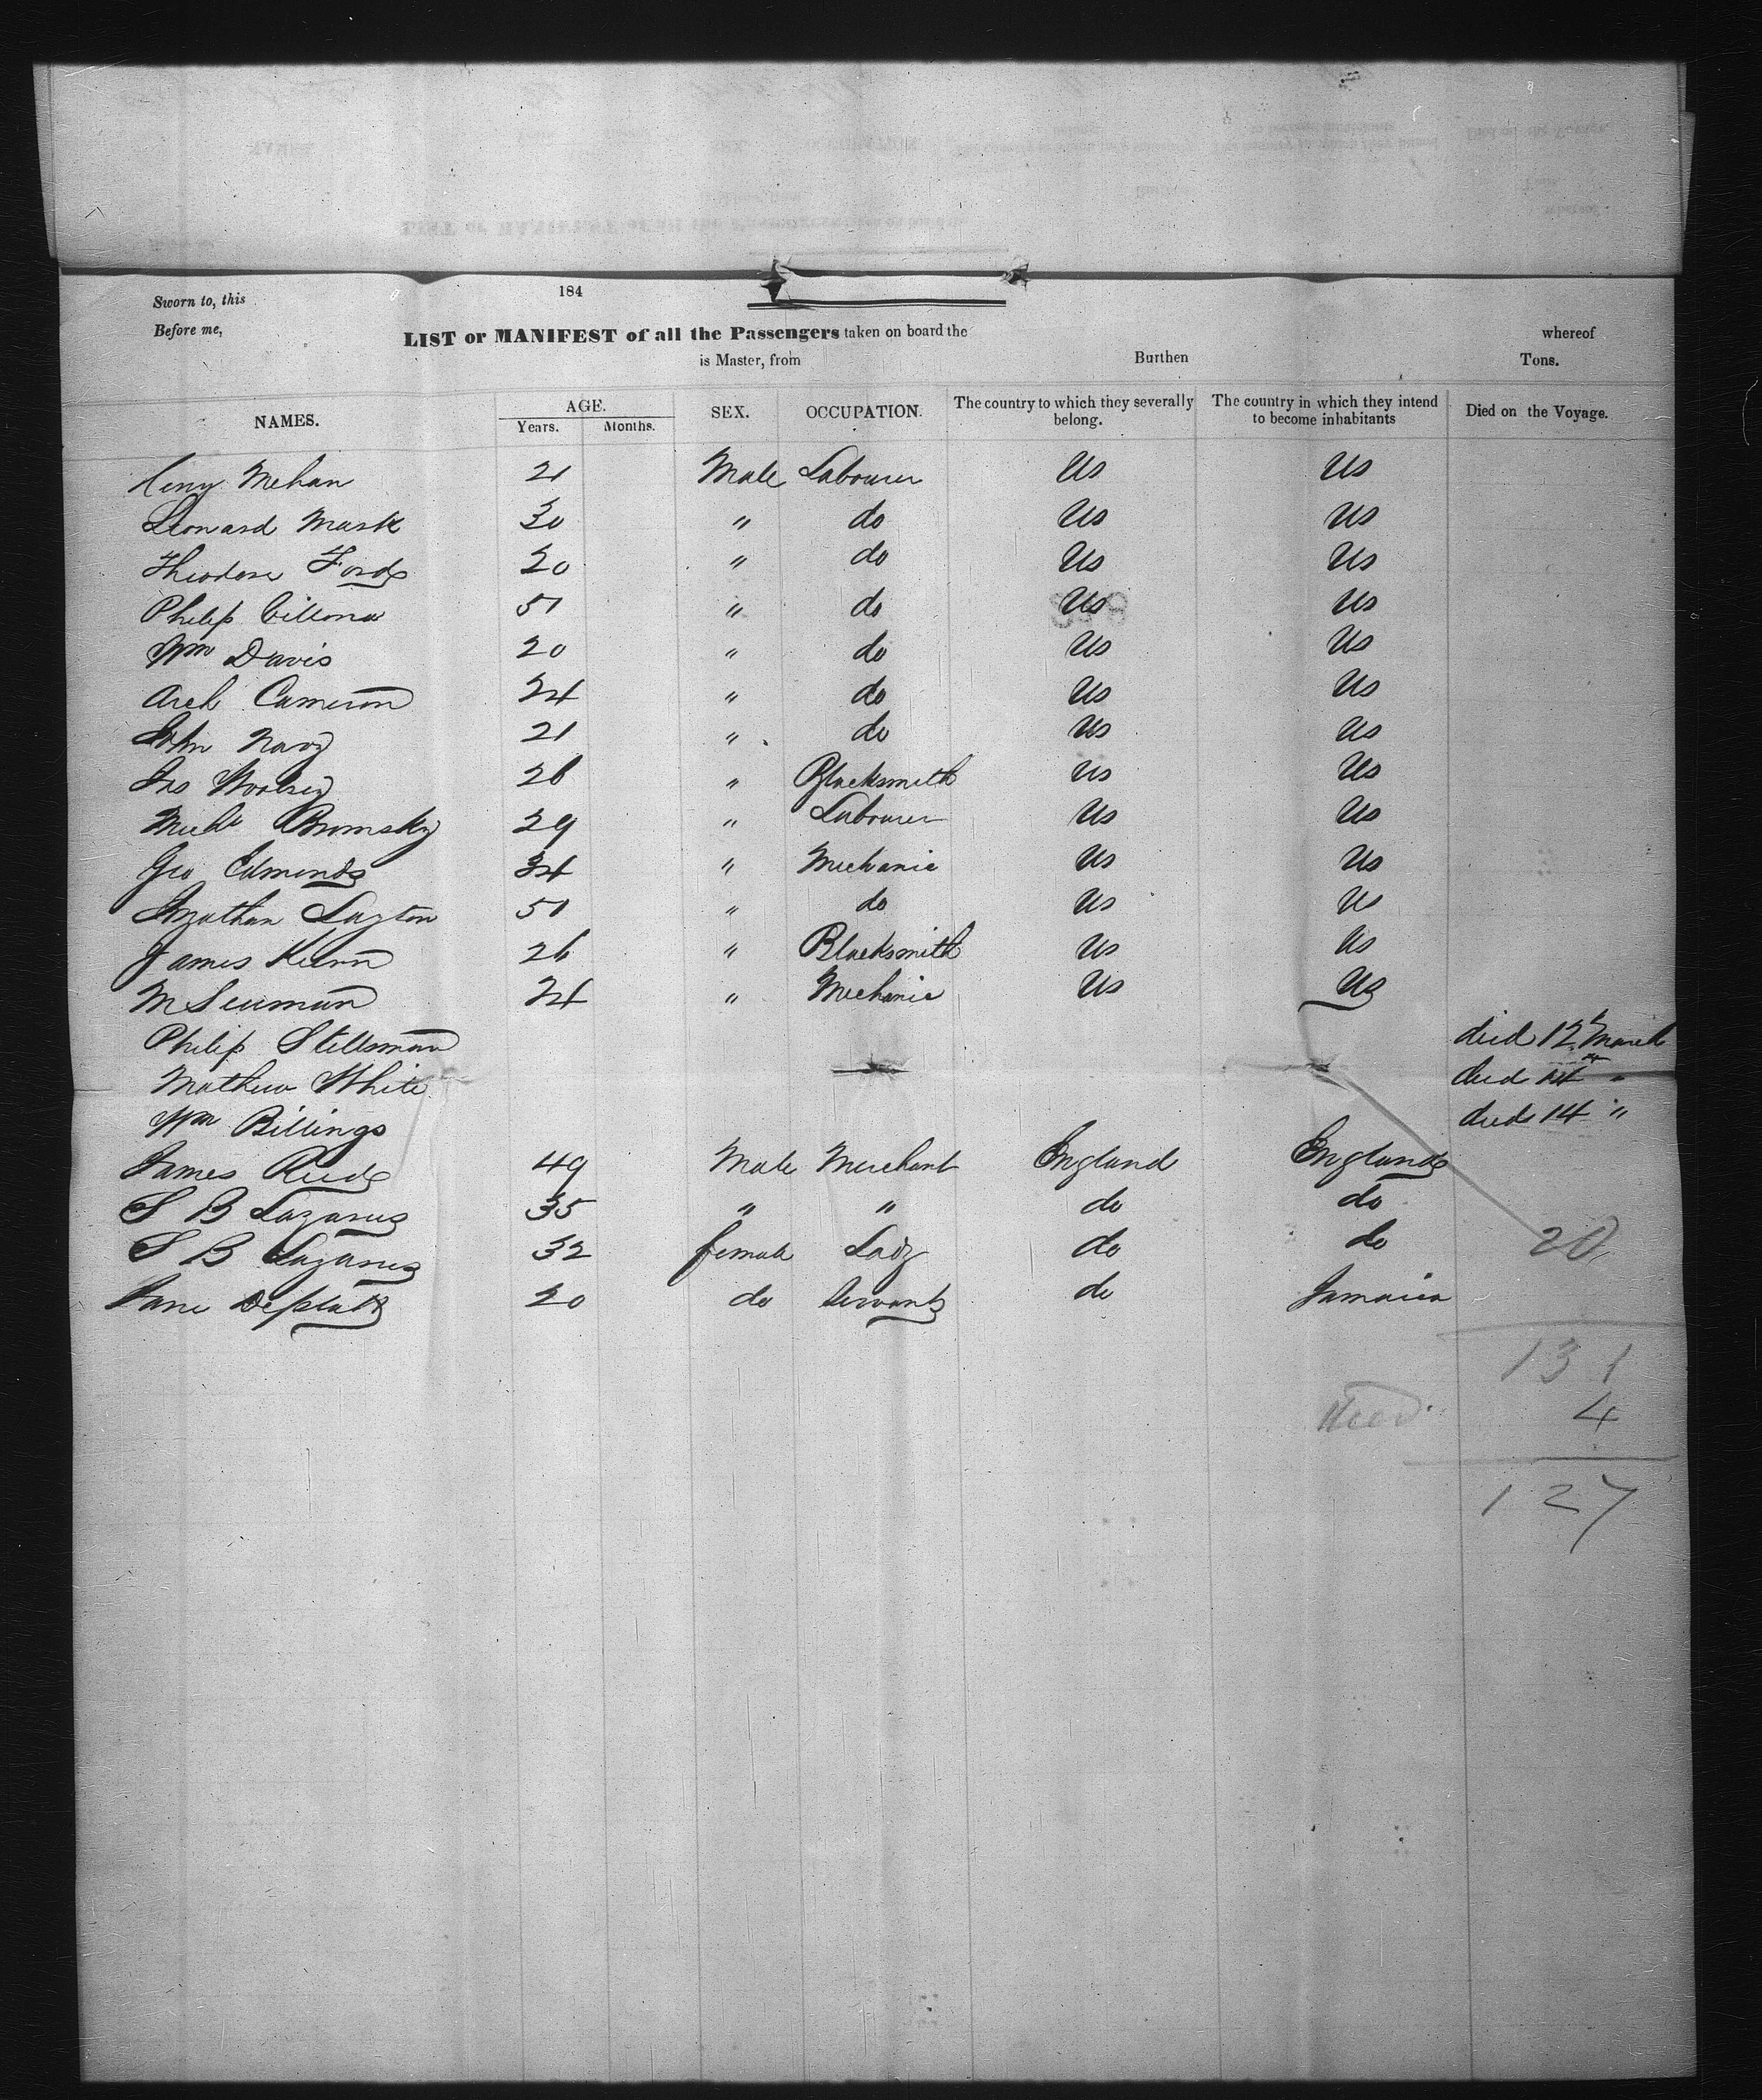 Sworn to, this 184
Before me,
LIST or MANIFEST of all the Passengers taken on board the whereof
is Master, from Burthen Tons.
NAMES. AGE. Years. Months. SEX. OCCUPATION. The country to which they severally belong. The country in which they intend to become inhabitants Died on the Voyage.
Mehan 21 Male Labourer Us Us
Leonard Mask 30 " do Us Us
Theodore Ford 20 " do Us Us
Philip 51 " do Us Us
Wm Davis 20 " do Us Us
Arch Cameron 24 " do Us Us
John Navy 21 " do Us Us
Jas 26 " Blacksmith Us Us
Michl 29 " Labourer Us Us
Geo Edmonds 34 " Mechanic Us Us
Jonathan Layton 51 " do Us Us
James 26 " Blacksmith Us Us
M Seaman 24 " Mechanic Us Us
Philip Stellsman died 12th March
Mathew White died 14 "
Wm Billings died 14 "
James Reid 49 Male Merchant England England
S B Lazarus 35 " " do do
S B Lazarus 32 female Lady do do 20
Jane 20 do Servant do Jamaica
131
died 4
127